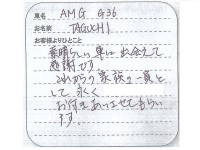 車名 AMG G36
お名前 TAGUCHI
お客様よりひとこと
素晴らしい車に出会えて
感謝です。
これからの家族の一員と
して永く
お付きあいさせてもらい
ます。